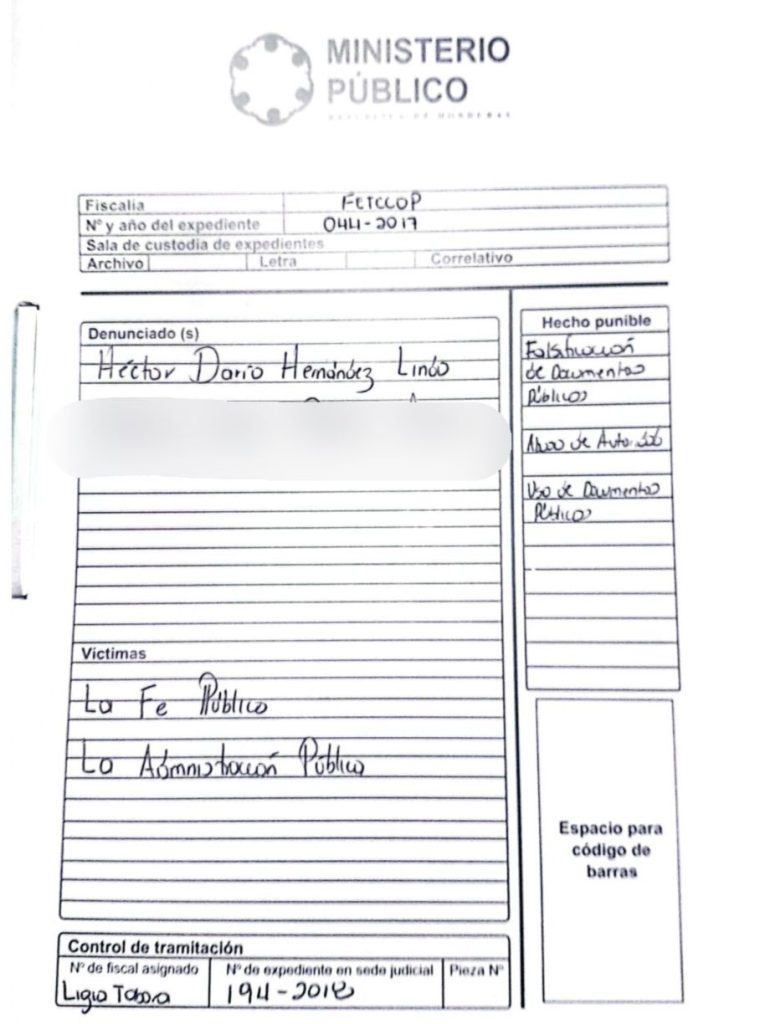 MINISTERIO
PÚBLICO
REPÚBLICA DE HONDURAS
Fiscalia FETCCOP
Nº y año del expediente 044-2017
Sala de custodia de expedientes
Archivo Letra Correlativo
Denunciado (s)
Héctor Dario Hernández Lindo
Hecho punible
Falsificación
de Documentos
Públicos
Abuso de Autoridad
Uso de Documentos
Públicos
Victimas
La Fe Pública
La Administración Pública
Espacio para
código de
barras
Control de tramitación
Nº de fiscal asignado Nº de expediente en sede judicial Pieza Nº
Ligia Tabora 194-2018